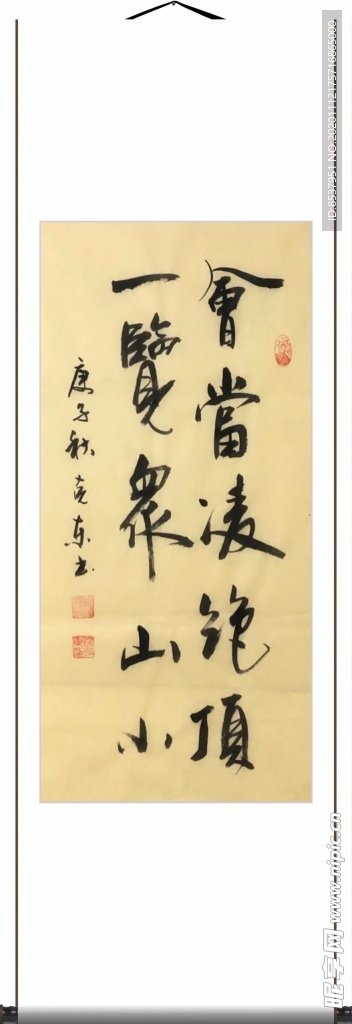 會當凌絕頂
一覽衆山小
庚子秋 克東书
ID:8537951 NO:20201112175716865000
昵享网 www.nipic.cn